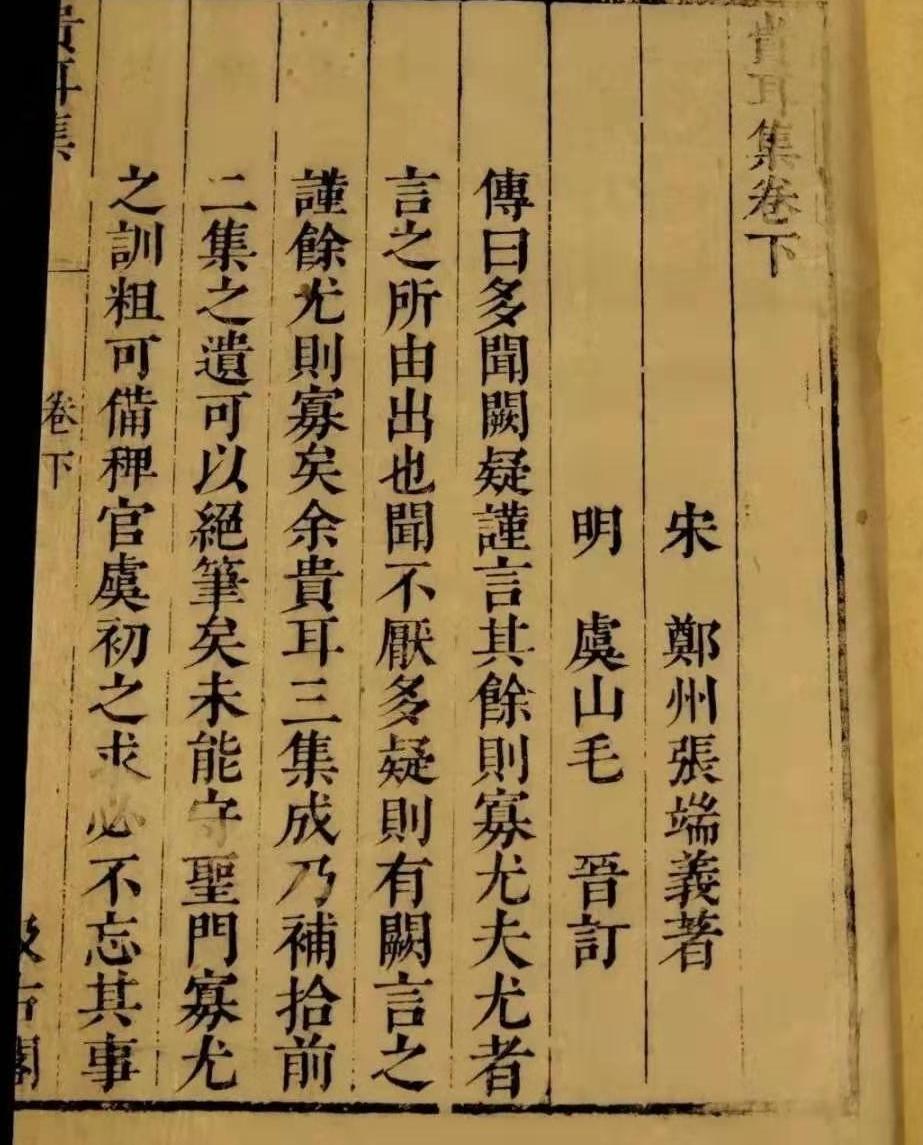 貴耳集卷下
宋　鄭州張端義著
明　虞山毛　晉訂
傳曰多聞闕疑謹言其餘則寡尤夫尤者
言之所由出也聞不厭多疑則有闕言之
謹餘尤則寡矣余貴耳三集成乃補拾前
二集之遺可以絕筆矣未能守聖門寡尤
之訓粗可備稗官虞初之求必不忘其事
貴耳集　卷下　汲古閣